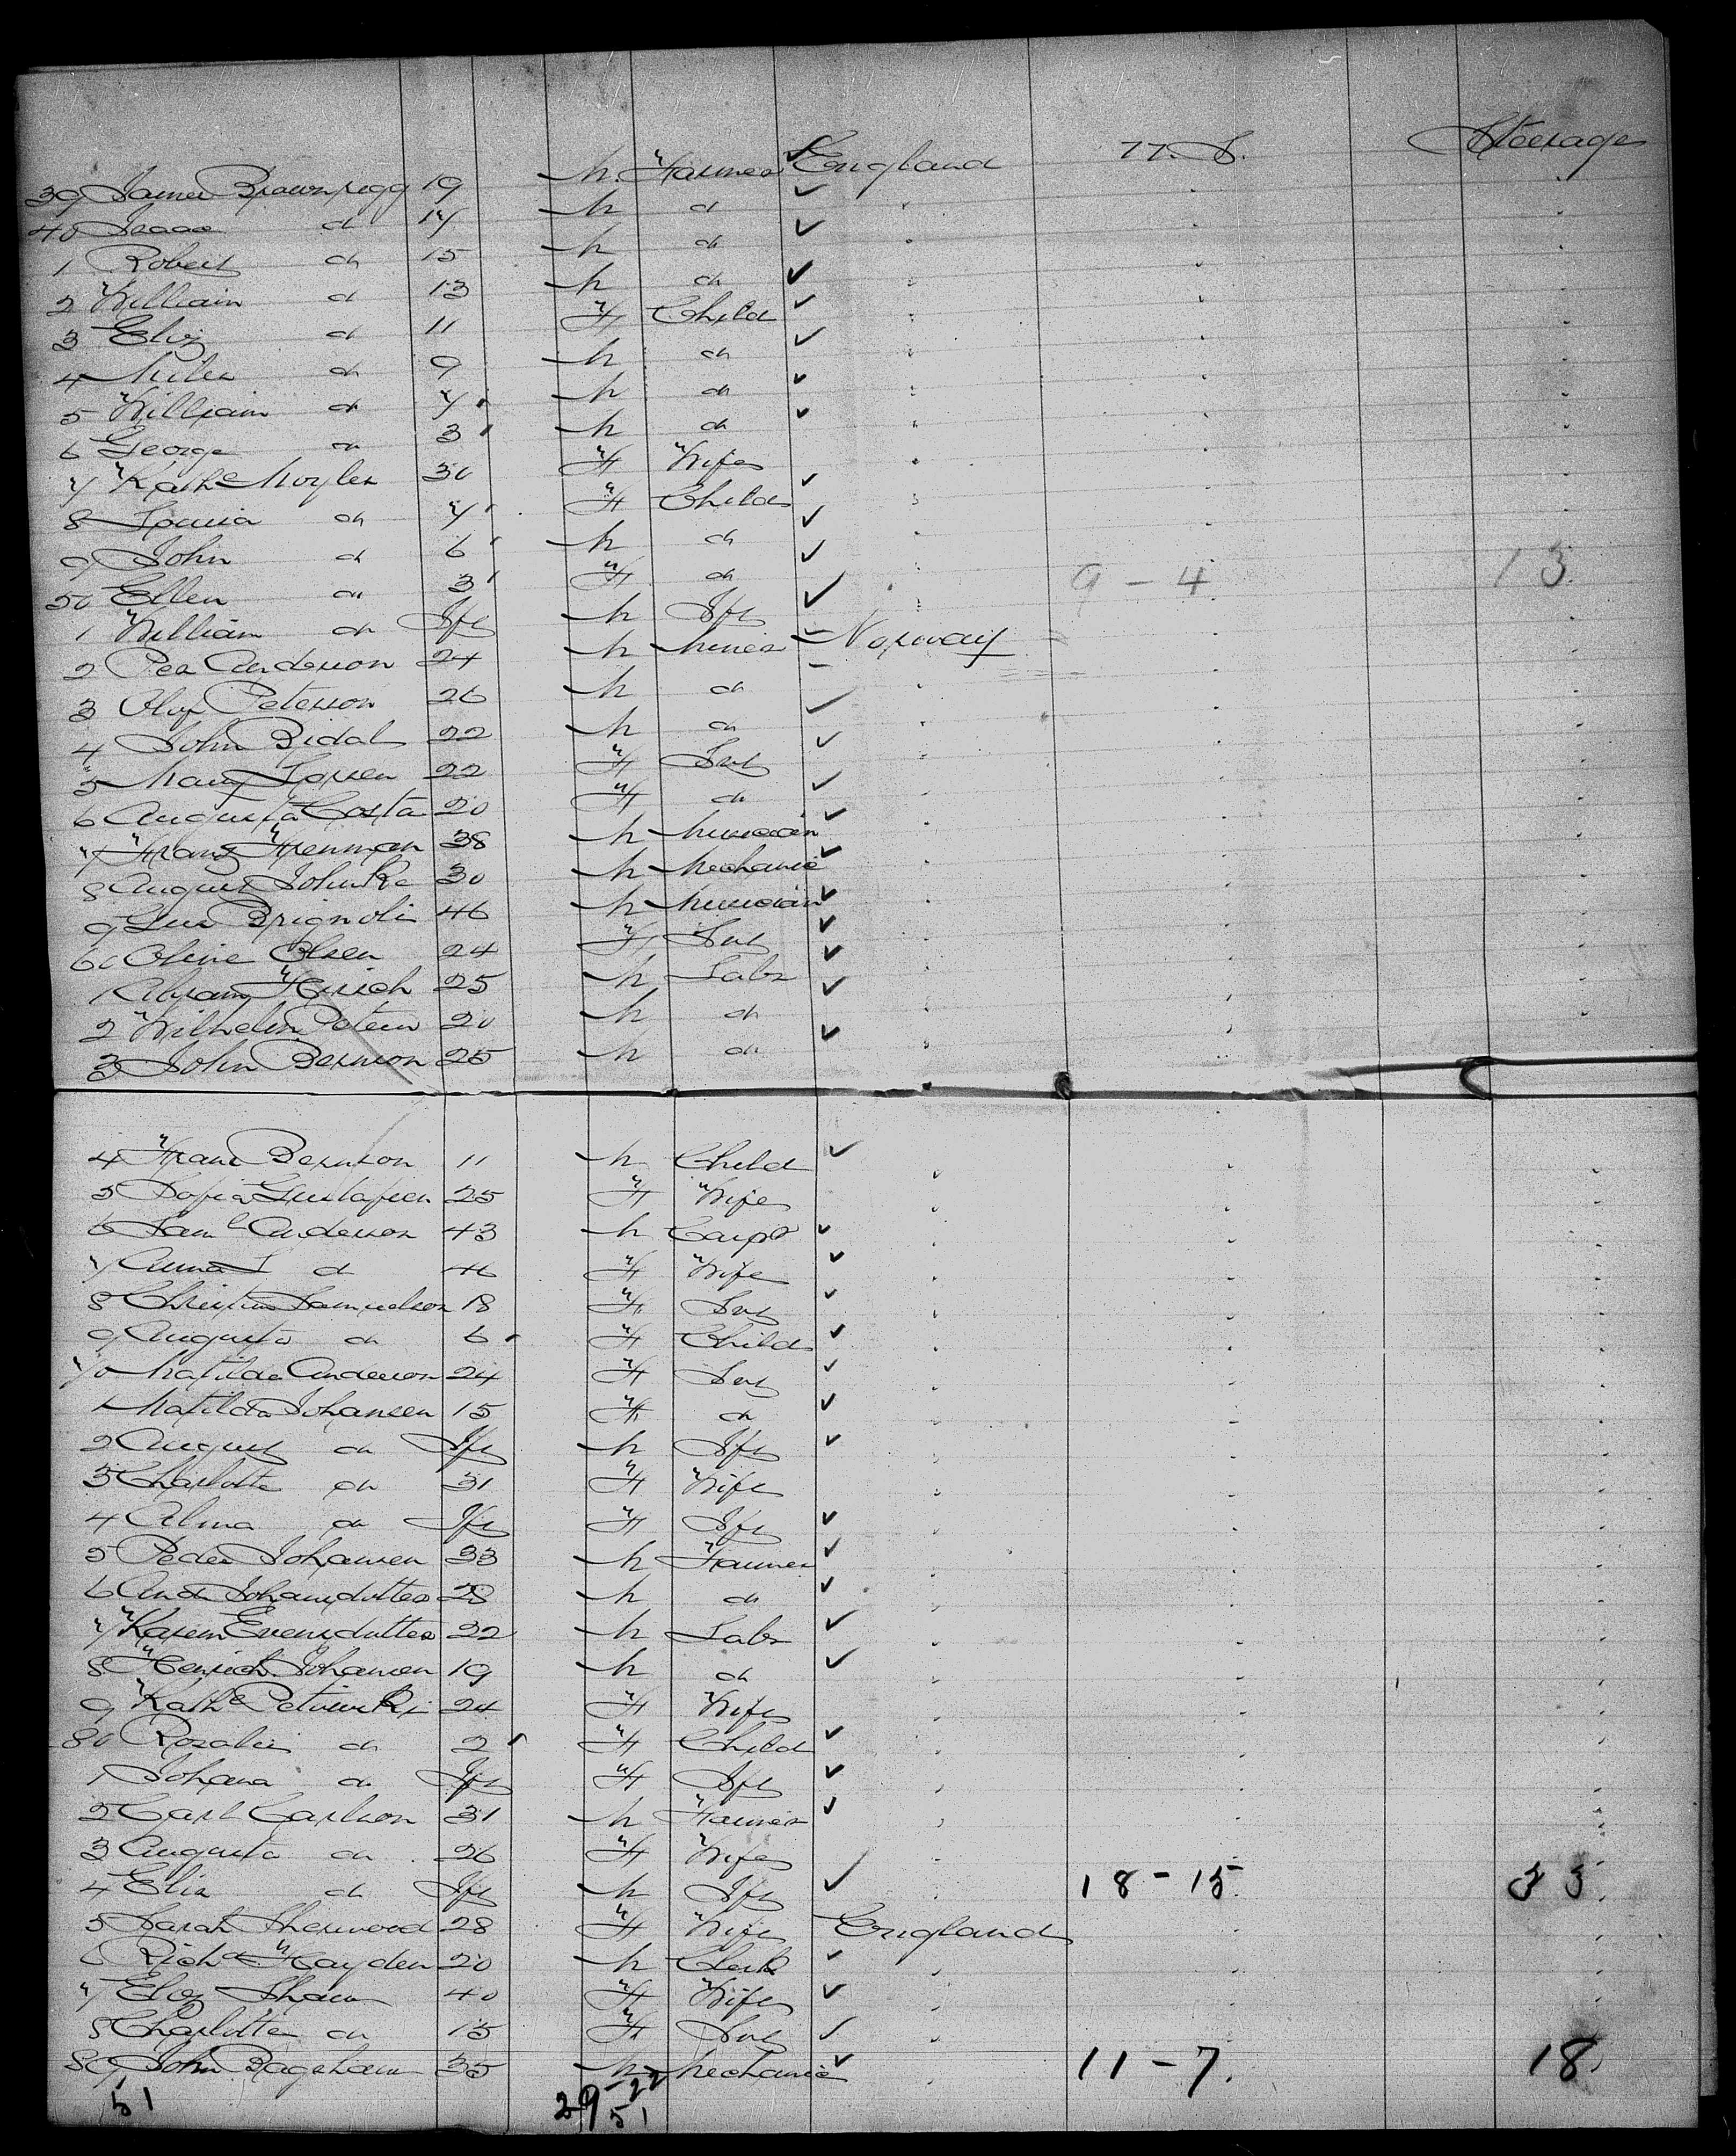 39 James Brownrigg 19 M Farmer England U.S. Steerage
40 Isaac do 17 M do
1 Robert do 15 M do
2 William do 13 M do
3 Eliz do 11 F Child
4 Miles do 9 M do
5 William do 7 M do
6 George do 3 M do
7 Kathe Moyler 30 F Wife
8 Louisa do 7 F Child
9 John do 6 M do
50 Ellen do 3 F do 9 - 4 13
1 William do Inft M Inft
2 Anderson 24 M Miner Norway
3 Olof Peterson 26 M do
4 John Bidal 22 M do
5 Mary Lorsen 22 F Svt
6 Augusta Costa 20 F do
7 Franz Frenman 38 M Musician
8 August 30 M Mechanic
9 Brignoli 46 M Musician
60 Oline Olsen 24 F Svt
1 Abram 25 M Labr
2 Wilhelm Peters 20 M do
3 John Bernson 25 M do
4 Frans Bernson 11 M Child
5 Sofia Gustafsen 25 F Wife
6 Saml Anderson 43 M Carptr
7 Anna L do 46 F Wife
8 Christina Samuelson 18 F Svt
9 Augusta do 6 F Child
70 Matilda Anderson 24 F Svt
1 Matilda Johansen 15 F do
2 August do Inft M Inft
3 Charlotte do 31 F Wife
4 Alma do Inft F Inft
5 Peder Johansen 33 M Farmer
6 28 M do
7 Karen Evensdatter 22 M Labr
8 Henrich Johansen 19 M do
9 Kathe 24 F Wife
80 Rosalie do 2 F Child
1 Johana do Inft F Inft
2 Carl Carlson 31 M Farmer
3 Augusta do 26 F Wife
4 Elis do Inft M Inft 18 - 15 33
5 Sarah Sherwood 28 F Wife England
6 Richd Hayden 20 M Clerk
7 Eliz Shaw 40 F Wife
8 Charlotte do 15 F Svt
89 John Bagshaw 35 M Mechanic 11 - 7. 18
51 29-22
51